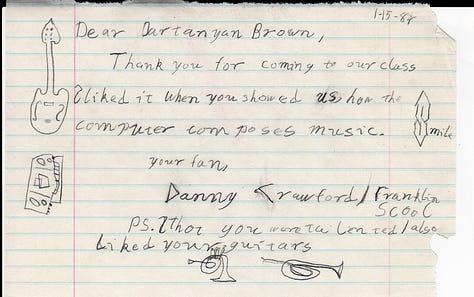 1-15-87
Dear Dartanyan Brown,
Thank you for coming to our class
I liked it when you showed us how the
computer composes music.
your fan,
Danny Crawford / Franklin
SCOOL
PS. I thot you were talented I also
Liked your guitars